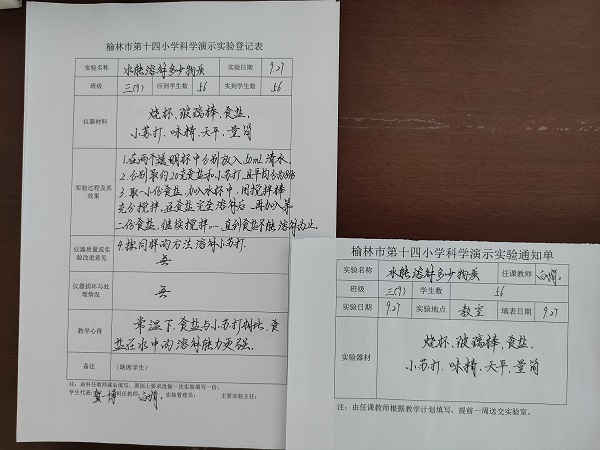 榆林市第十四小学科学演示实验登记表
实验名称 水能溶解多少物质 实验日期 9.27
班级 三(9) 应到学生数 56 实到学生数 56
仪器材料 烧杯、玻璃棒、食盐、
小苏打、味精、天平、量筒
实验过程及其效果
1.在两个透明杯中分别放入50mL清水。
2.分别取约20克食盐和小苏打,且平均分为8份
3.取一小份食盐,加入水杯中,用搅拌棒
充分搅拌,在食盐完全溶解后,再加入第
二份食盐,继续搅拌……直到食盐不能溶解为止。
4.按同样的方法溶解小苏打.
仪器质量或实验改进意见 无
仪器损坏与处理情况 无
教学心得 常温下,食盐与小苏打相比,食
盐在水中的溶解能力更强.
备注 (缺席学生)
注:由科任教师课后填写,原则上要求做一次实验填写一份;
学生代表: 科任教师: 实验管理员: 主要实验主任:
榆林市第十四小学科学演示实验通知单
实验名称 水能溶解多少物质 任课教师
班级 三(9) 学生数 56
实验日期 9.27 实验地点 教室 填表日期 9.27
实验器材 烧杯、玻璃棒、食盐、
小苏打、味精、天平、量筒
注:由任课教师根据教学计划填写,提前一周送交实验室。